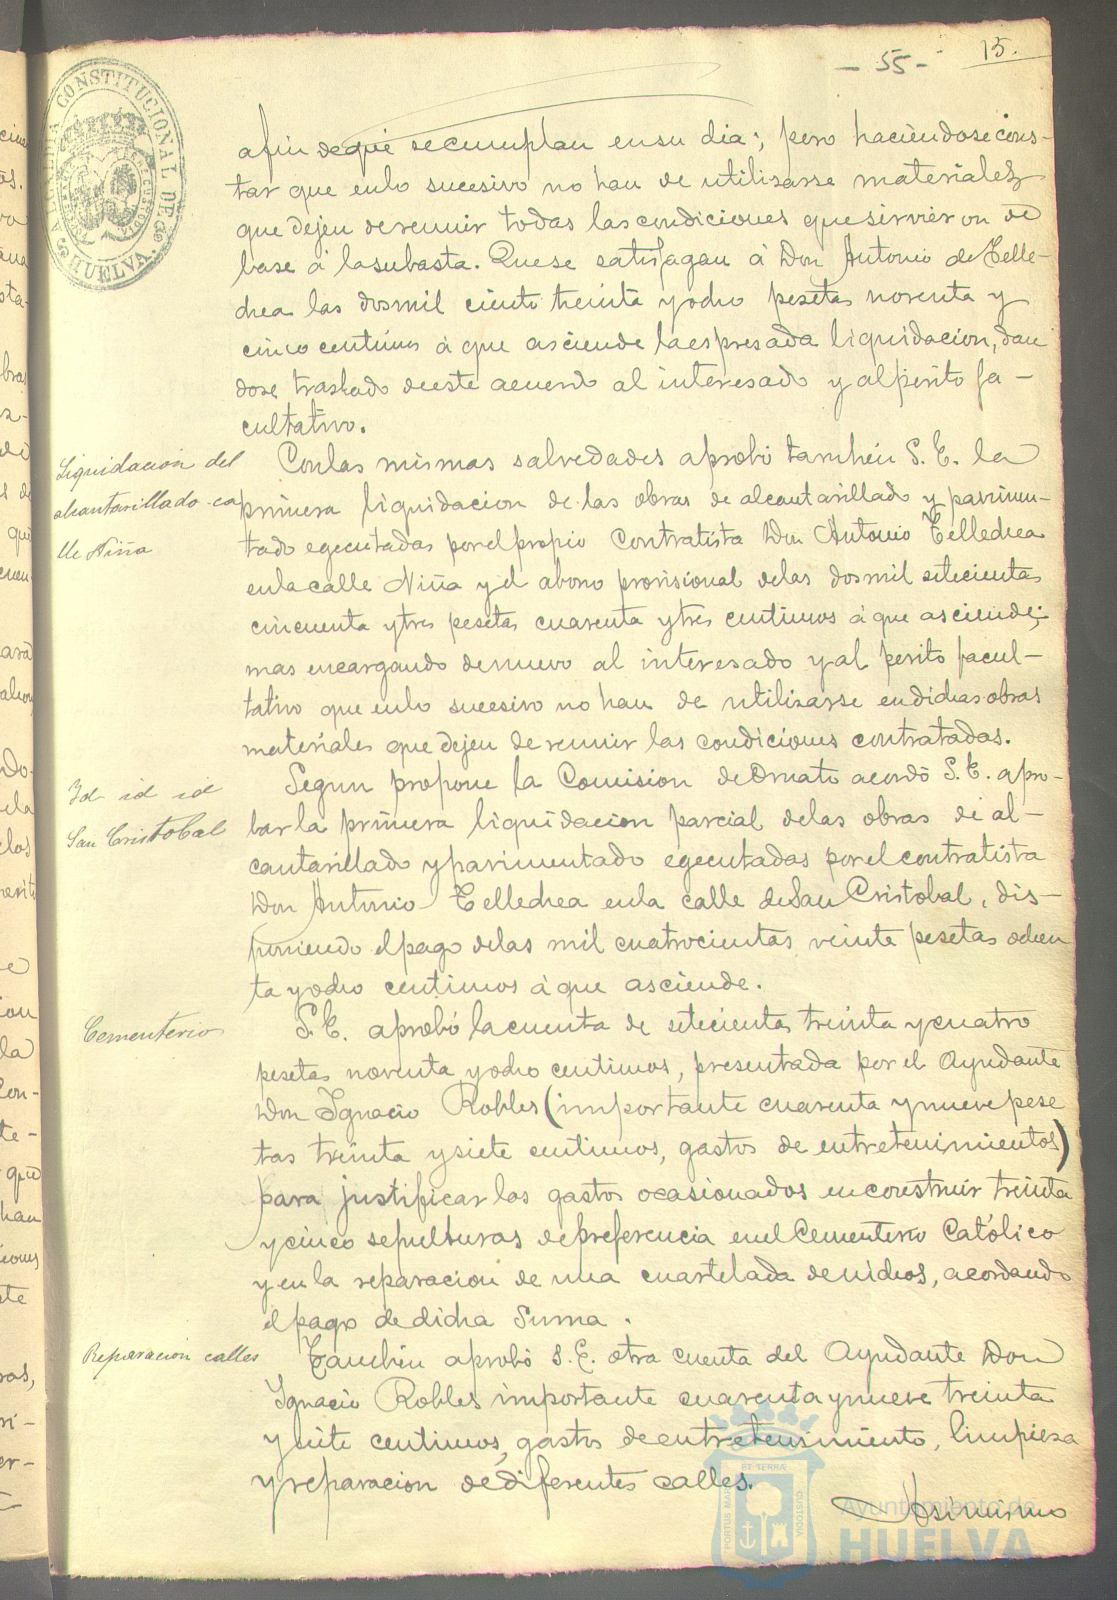 - 55 - 15.
ALCALDIA CONSTITUCIONAL DE HUELVA.
afin de que se cumplan en su dia; pero haciéndose cons-
tar que en lo sucesivo no han de utilizarse materiales
que dejen de reunir todas las condiciones que sirvieron de
base á la subasta. Que se satisfagan á Don Antonio de Telle-
chea las dos mil ciento treinta y ocho pesetas noventa y
cinco centimos á que asciende la espresada liquidacion, dan
dose traslado de este acuerdo al interesado y al perito fa-
cultativo.
Liquidacion del
alcantarillado ca
lle Niña
Con las mismas salvedades aprobó tambien S. E. la
primera liquidacion de las obras de alcantarillado y pavimen-
tado egecutadas por el propio contratista Don Antonio Tellechea
en la calle Niña y el abono provisional de las dos mil setecientas
cincuenta y tres pesetas cuarenta y tres centimos á que asciende;
mas encargando de nuevo al interesado y al perito facul-
tativo que en lo sucesivo no han de utilizarse en dichas obras
materiales que dejen de reunir las condiciones contratadas.
Id id id
San Cristobal
Segun propone la Comision de Ornato acordó S. E. apro-
bar la primera liquidacion parcial de las obras de al-
cantarillado y pavimentado egecutadas por el contratista
Don Antonio Tellechea en la calle de San Cristobal, dis-
poniendo el pago de las mil cuatrocientas veinte pesetas ochen
ta y ocho centimos á que asciende.
Cementerio
S. E. aprobó la cuenta de setecientas treinta y cuatro
pesetas noventa y ocho centimos, presentada por el Ayudante
Don Ignacio Robles (importante cuarenta y nueve pese
tas treinta y siete centimos, gastos de entretenimientos)
para justificar los gastos ocasionados en construir treinta
y cinco sepulturas de preferencia en el Cementerio Católico
y en la reparacion de una cuartelada de nichos, acordando
el pago de dicha suma.
Reparacion calles
Tambien aprobó S. E. otra cuenta del Ayudante Don
Ignacio Robles importante cuarenta y nueve treinta
y siete centimos, gastos de entretenimiento, limpieza
y reparacion de diferentes calles.
Asimismo
Ayuntamiento de
HUELVA
PORTUS MARIS ET TERRAE CUSTODIA